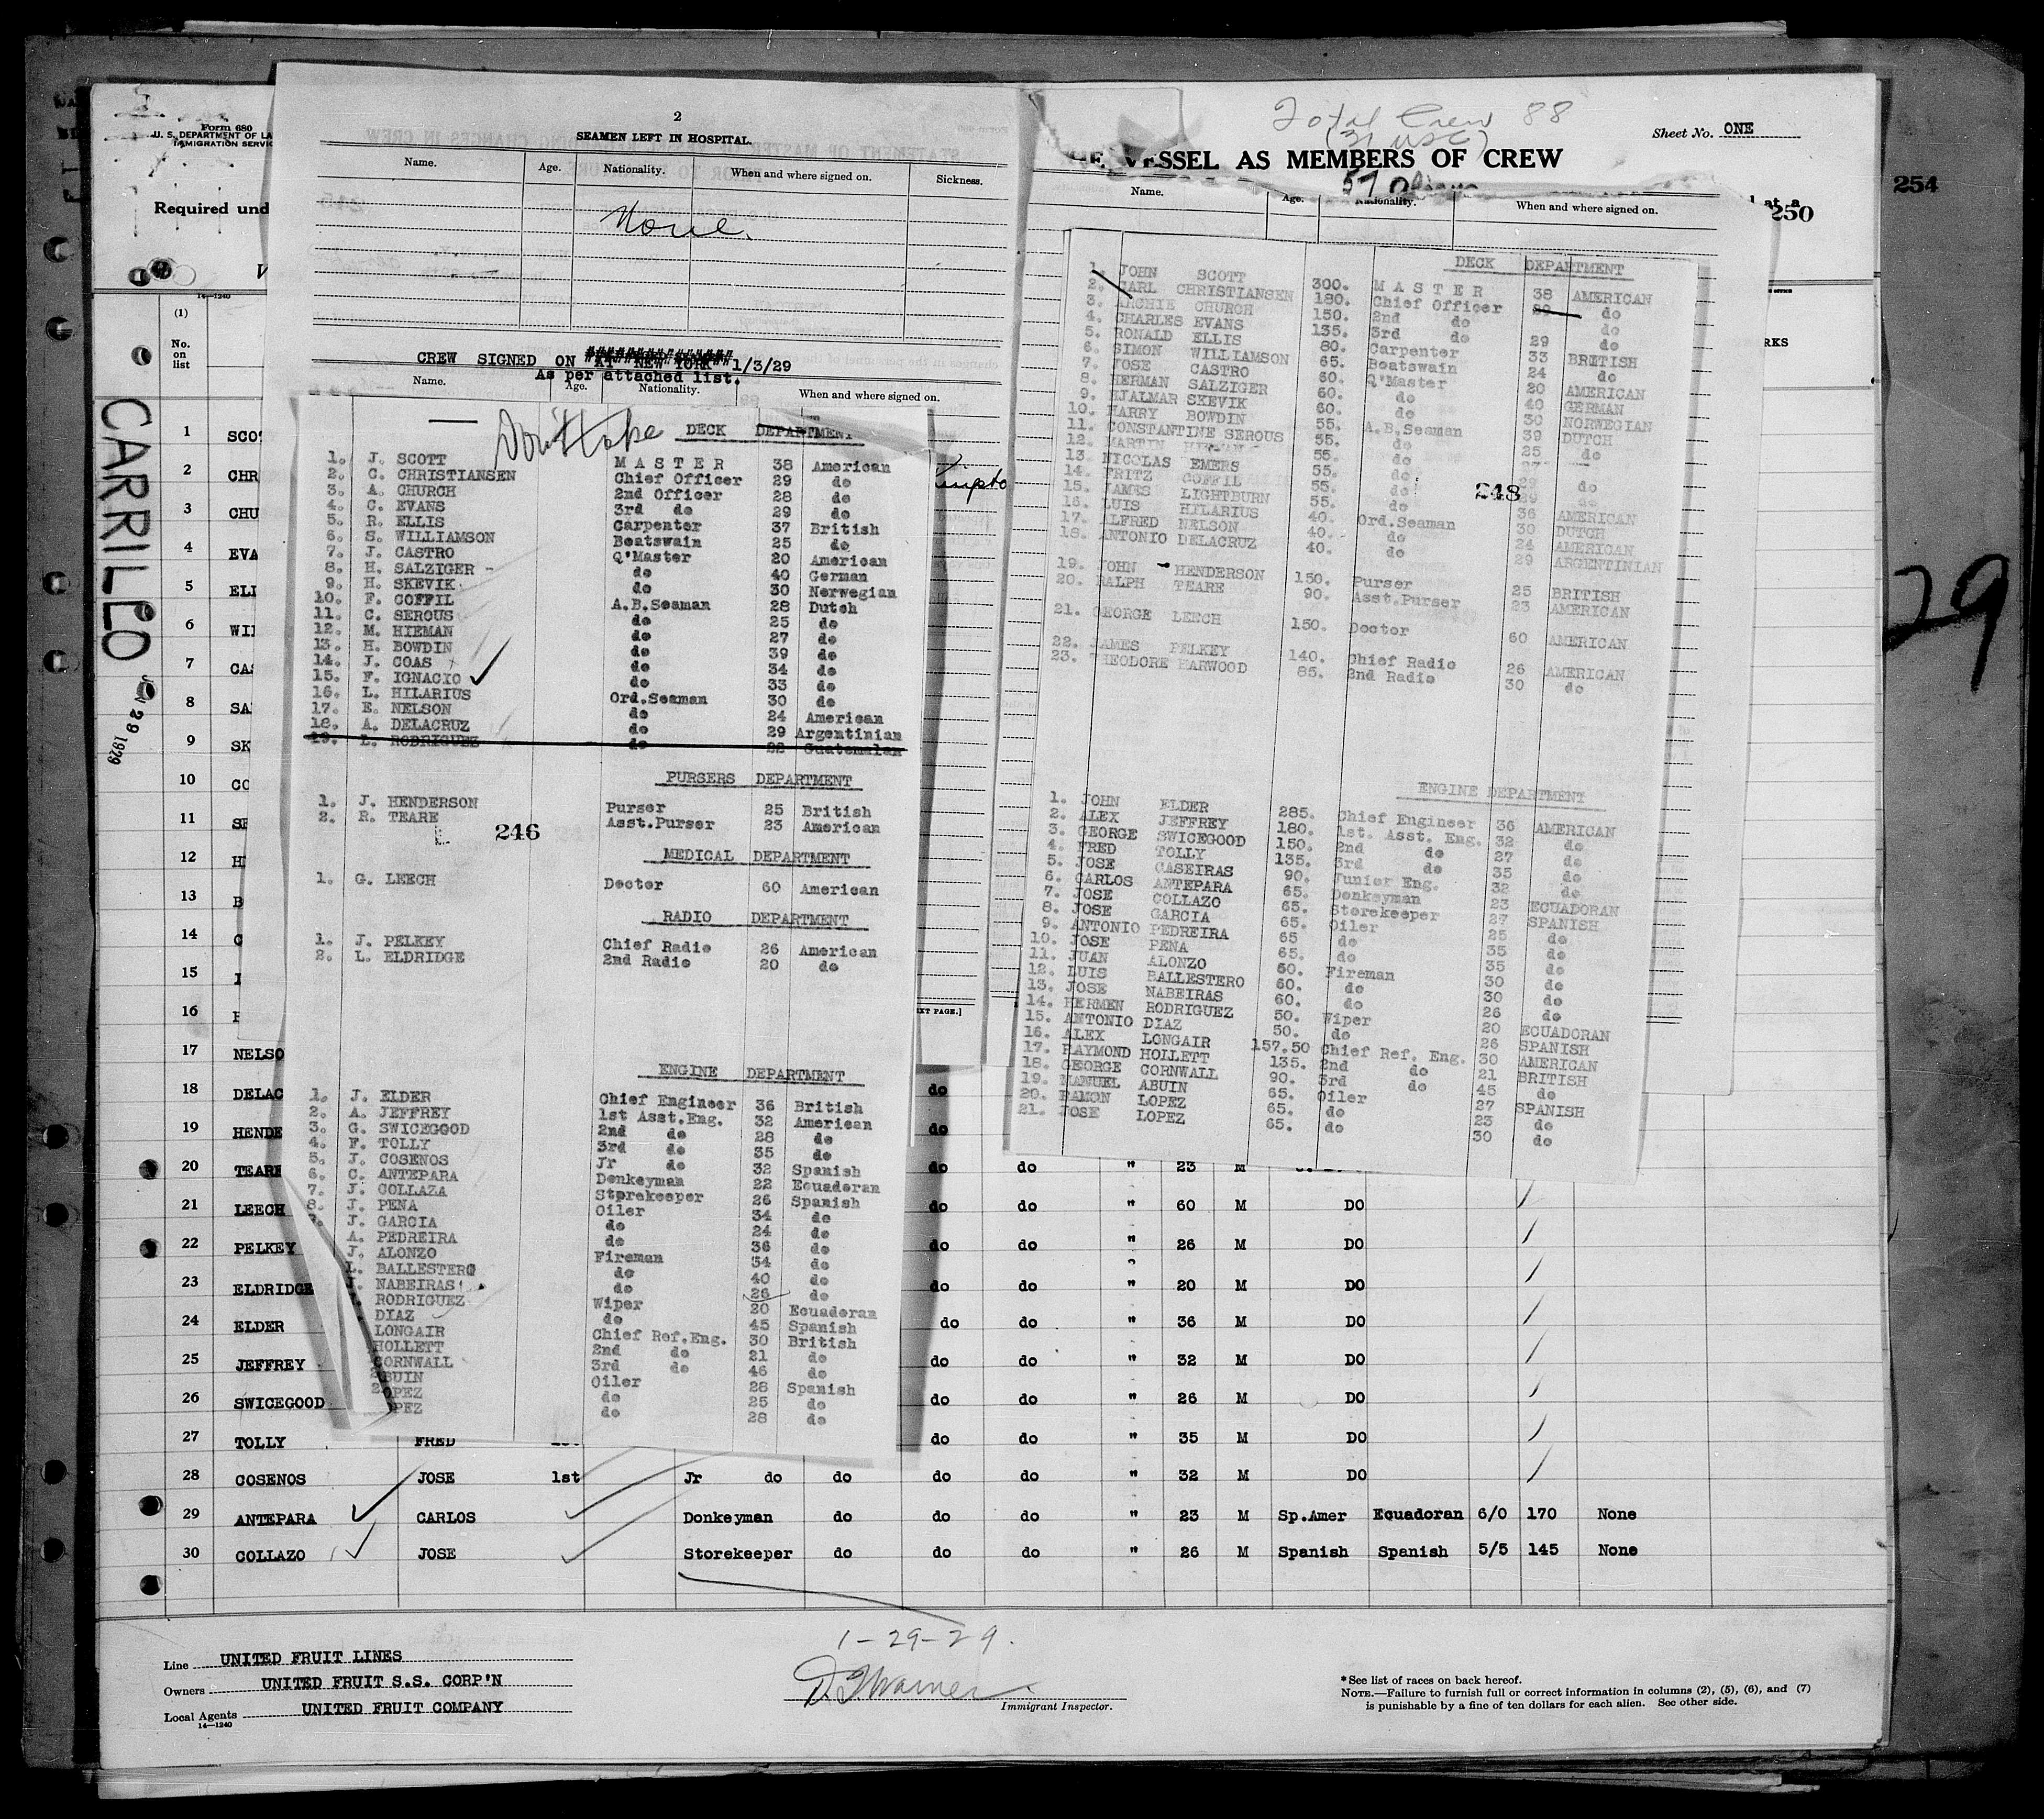 Form 680
U. S. DEPARTMENT OF LA
IMMIGRATION SERVIC
Required und
V
14—1240
(1)
No.
on
list
CARRILLO
29 1929
2
SEAMEN LEFT IN HOSPITAL.
Name. Age. Nationality. When and where signed on. Sickness.
None.
CREW SIGNED ON AT NEW YORK 1/3/29
As per attached list.
Name. Age. Nationality. When and where signed on.
Don't tape
DECK DEPARTMENT
1. J. SCOTT MASTER 38 American
2. C. CHRISTIANSEN Chief Officer 29 do
3. A. CHURCH 2nd Officer 28 do
4. C. EVANS 3rd do 29 do
5. R. ELLIS Carpenter 37 British
6. S. WILLIAMSON Boatswain 25 do
7. J. CASTRO Q'Master 20 American
8. H. SALZIGER do 40 German
9. H. SKEVIK do 30 Norwegian
10. F. COFFIL A.B.Seaman 28 Dutch
11. C. SEROUS do 25 do
12. M. HIEMAN do 27 do
13. H. BOWDIN do 39 do
14. J. COAS do 34 do
15. F. IGNACIO do 33 do
16. L. HILARIUS Ord.Seaman 30 do
17. E. NELSON do 24 American
18. A. DELACRUZ do 29 Argentinian
19. L. RODRIGUEZ do 22 Guatemalan
PURSERS DEPARTMENT
1. J. HENDERSON Purser 25 British
2. R. TEARE Asst.Purser 23 American
246
MEDICAL DEPARTMENT
1. G. LEECH Doctor 60 American
RADIO DEPARTMENT
1. J. PELKEY Chief Radio 26 American
2. L. ELDRIDGE 2nd Radio 20 do
ENGINE DEPARTMENT
1. J. ELDER Chief Engineer 36 British
2. A. JEFFREY 1st Asst.Eng. 32 American
3. G. SWICEGOOD 2nd do 28 do
4. F. TOLLY 3rd do 35 do
5. J. COSENOS Jr do 32 Spanish
6. C. ANTEPARA Donkeyman 22 Ecuadoran
7. J. COLLAZA Storekeeper 26 Spanish
8. J. PENA Oiler 34 do
J. GARCIA do 24 do
A. PEDREIRA do 36 do
J. ALONZO Fireman 34 do
L. BALLESTERO do 40 do
NABEIRAS do 26 do
RODRIGUEZ Wiper 20 Ecuadoran
DIAZ do 45 Spanish
LONGAIR Chief Ref.Eng. 30 British
HOLLETT 2nd do 21 do
CORNWALL 3rd do 46 do
BUIN Oiler 28 Spanish
OPEZ do 25 do
PEZ do 28 do
Total Crew 88
(31 USC)
57 Aliens
Sheet No. ONE
VESSEL AS MEMBERS OF CREW
Name. Age. Nationality. When and where signed on.
250
254
29
DECK DEPARTMENT
1. JOHN SCOTT 300. MASTER 38 AMERICAN
2. CARL CHRISTIANSEN 180. Chief Officer 29 do
3. ARCHIE CHURCH 150. 2nd do do
4. CHARLES EVANS 135. 3rd do 29 do
5. RONALD ELLIS 80. Carpenter 33 BRITISH
6. SIMON WILLIAMSON 65. Boatswain 24 do
7. JOSE CASTRO 60. Q'Master 20 AMERICAN
8. HERMAN SALZIGER 60. do 40 GERMAN
9. HJALMAR SKEVIK 60. do 30 NORWEGIAN
10. HARRY BOWDIN 55. A.B.Seaman 39 DUTCH
11. CONSTANTINE SEROUS 55. do 25 do
12. MARTIN HIEMAN 55. do 27
13. NICOLAS EMERS 55. do do
14. FRITZ COFFIL 55. do
15. JAMES LIGHTBURN 55. do 36 AMERICAN
16. LUIS HILARIUS 40. Ord.Seaman 30 DUTCH
17. ALFRED NELSON 40. do 24 AMERICAN
18. ANTONIO DELACRUZ 40. do 29 ARGENTINIAN
248
19. JOHN HENDERSON 150. Purser 25 BRITISH
20. RALPH TEARE 90. Asst.Purser 23 AMERICAN
21. GEORGE LEECH 150. Doctor 60 AMERICAN
22. JAMES PELKEY 140. Chief Radio 26 AMERICAN
23. THEODORE HARWOOD 85. 2nd Radio 30 do
ENGINE DEPARTMENT
1. JOHN ELDER 285. Chief Engineer 36 AMERICAN
2. ALEX JEFFREY 180. 1st. Asst. Eng. 32 do
3. GEORGE SWICEGOOD 150. 2nd do 27 do
4. FRED TOLLY 135. 3rd do 35 do
5. JOSE CASEIRAS 90. Junior Eng. 32 do
6. CARLOS ANTEPARA 65. Donkeyman 23 ECUADORAN
7. JOSE COLLAZO 65. Storekeeper 27 SPANISH
8. JOSE GARCIA 65. Oiler 25 do
9. ANTONIO PEDREIRA 65 do 35 do
10. JOSE PENA 65. do 35 do
11. JUAN ALONZO 60. Fireman 30 do
12. LUIS BALLESTERO 60. do 30 do
13. JOSE NABEIRAS 60. do 26 do
14. HERMEN RODRIGUEZ 50. Wiper 20 ECUADORAN
15. ANTONIO DIAZ 50. do 26 SPANISH
16. ALEX LONGAIR 157.50 Chief Ref. Eng. 30 AMERICAN
17. RAYMOND HOLLETT 135. 2nd do 21 BRITISH
18. GEORGE CORNWALL 90. 3rd do 45 do
19. MANUEL ABUIN 65. Oiler 27 SPANISH
20. RAMON LOPEZ 65. do 23 do
21. JOSE LOPEZ 65. do 30 do
1 SCOT
2 CHR
3 CHU
4 EVA
5 ELI
6 WIL
7 CAS
8 SA
9 SK
10 CO
11 SE
12 HI
13 B
14
15
16
17 NELSO
18 DELAC do
19 HENDE do
20 TEARE do do " 23 M
21 LEECH do do " 60 M DO
22 PELKEY do do " 26 M DO
23 ELDRIDGE do do " 20 M DO
24 ELDER do do " 36 M DO
25 JEFFREY do do " 32 M DO
26 SWICEGOOD do do " 26 M DO
27 TOLLY FRED do do " 35 M DO
28 COSENOS JOSE 1st Jr do do do do " 32 M DO
29 ANTEPARA CARLOS Donkeyman do do do " 23 M Sp.Amer Ecuadoran 6/0 170 None
30 COLLAZO JOSE Storekeeper do do do " 26 M Spanish Spanish 5/5 145 None
Line UNITED FRUIT LINES
Owners UNITED FRUIT S.S. CORP'N
Local Agents UNITED FRUIT COMPANY
14—1240
1-29-29.
Immigrant Inspector.
*See list of races on back hereof.
NOTE.—Failure to furnish full or correct information in columns (2), (5), (6), and (7)
is punishable by a fine of ten dollars for each alien. See other side.